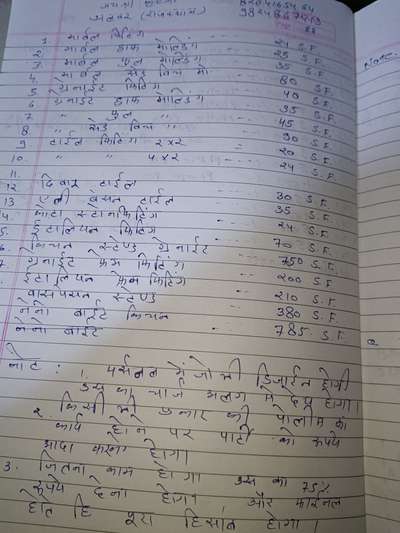 अलवर (राजस्थान)
1. मार्बल फिटिंग 24 S.F
2 मार्बल हाफ मोल्डिंग .. S.F
3 मार्बल फुल मोल्डिंग .. 35 S.F.
4 मार्बल सेड विथ मो. .. 80 S.F.
5 ग्रेनाईट फिटिंग .. 40 S.F.
6 ग्रेनाईट हाफ मोल्डिंग .. 35 S.F.
7 " फुल " .. 45 S.F.
8 " सेड विथ " .. 90 S.F.
9 टाईल फिटिंग 2x2 - 20 S.F.
10 " " 4x2 - 24 S.F.
11.
12 दिवार टाईल .. 30 S.F.
13 टाईल .. 35 S.F.
4. कोटा स्टोन फिटिंग .. 24 S.F.
5. ईटालियन फिटिंग .. 70 S.F.
किचन स्टेण्ड ग्रेनाईट .. 750 S.F.
7. ग्रेनाईट फ्रेम फिटिंग .. 200 S.F.
ईटालियन फ्रेम फिटिंग .. 210 S.F.
वासपेसन स्टेण्ड .. 380 S.F.
नेनो वाईट किचन .. 785 S.F.
नेनो वाईट
नोट :
1. पर्सनल में जो भी डिजाईन होगी
उस का चार्ज अलग से देय होगा।
2. किसी भी प्रकार की पोलीस का
कार्य होने पर पार्टी को रूपये
अदा करना होगा
3. जितना काम होगा उस का 75%
रूपये देना होगा और फाईनल
होते हि पूरा हिसाब होगा।
Name.